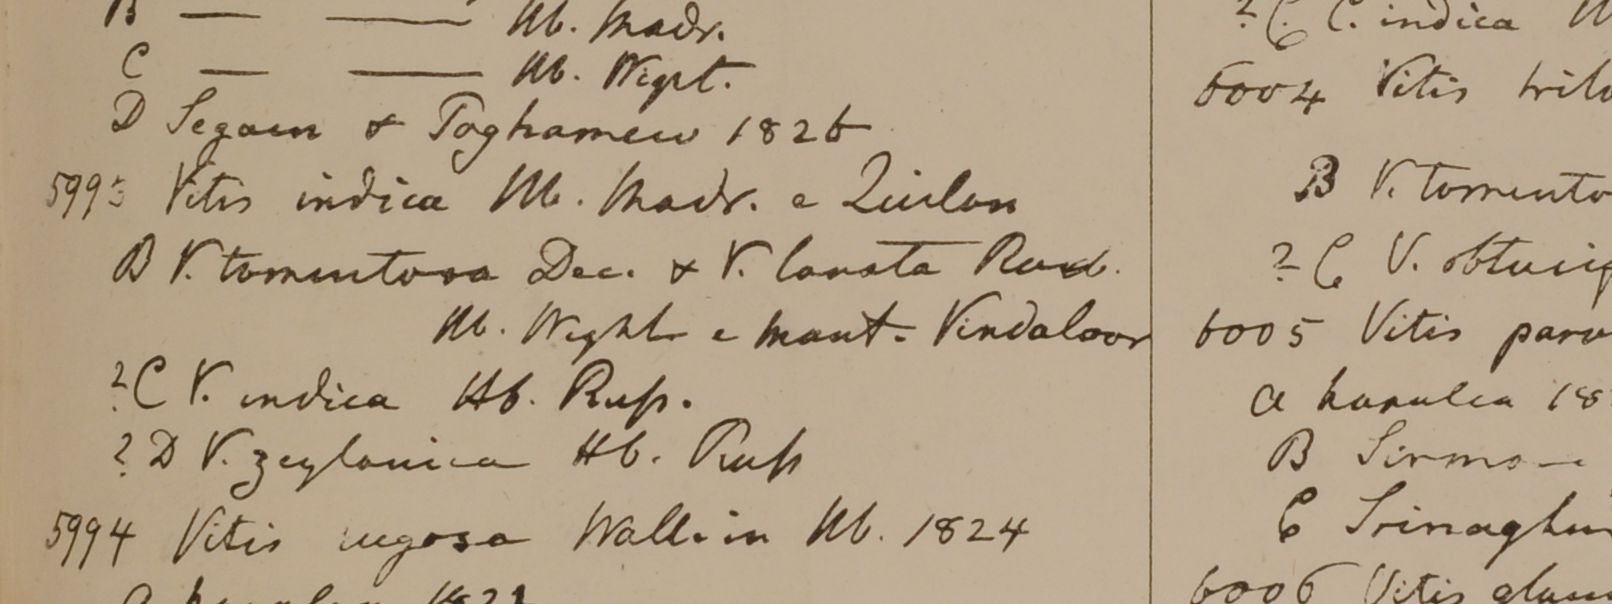 B — — Hb. Madr.
C — — Hb. Wight.
D Segain & Toghamew 1826
5993 Vitis indica Hb. Madr. e Quilon
B V. tomentosa Dec. & V. lanata Roxb.
Hb. Wight e mont. Vendaloor
? C V. indica Hb. Russ.
? D V. zeylanica Hb. Russ
5994 Vitis rugosa Wall. in Hb. 1824
a 1821
? C. C. indica
6004 Vitis
B V. tomento
? C V. obtusif
6005 Vitis parv
a 18
B Sirmo
C Srinaghur
6006 Vitis